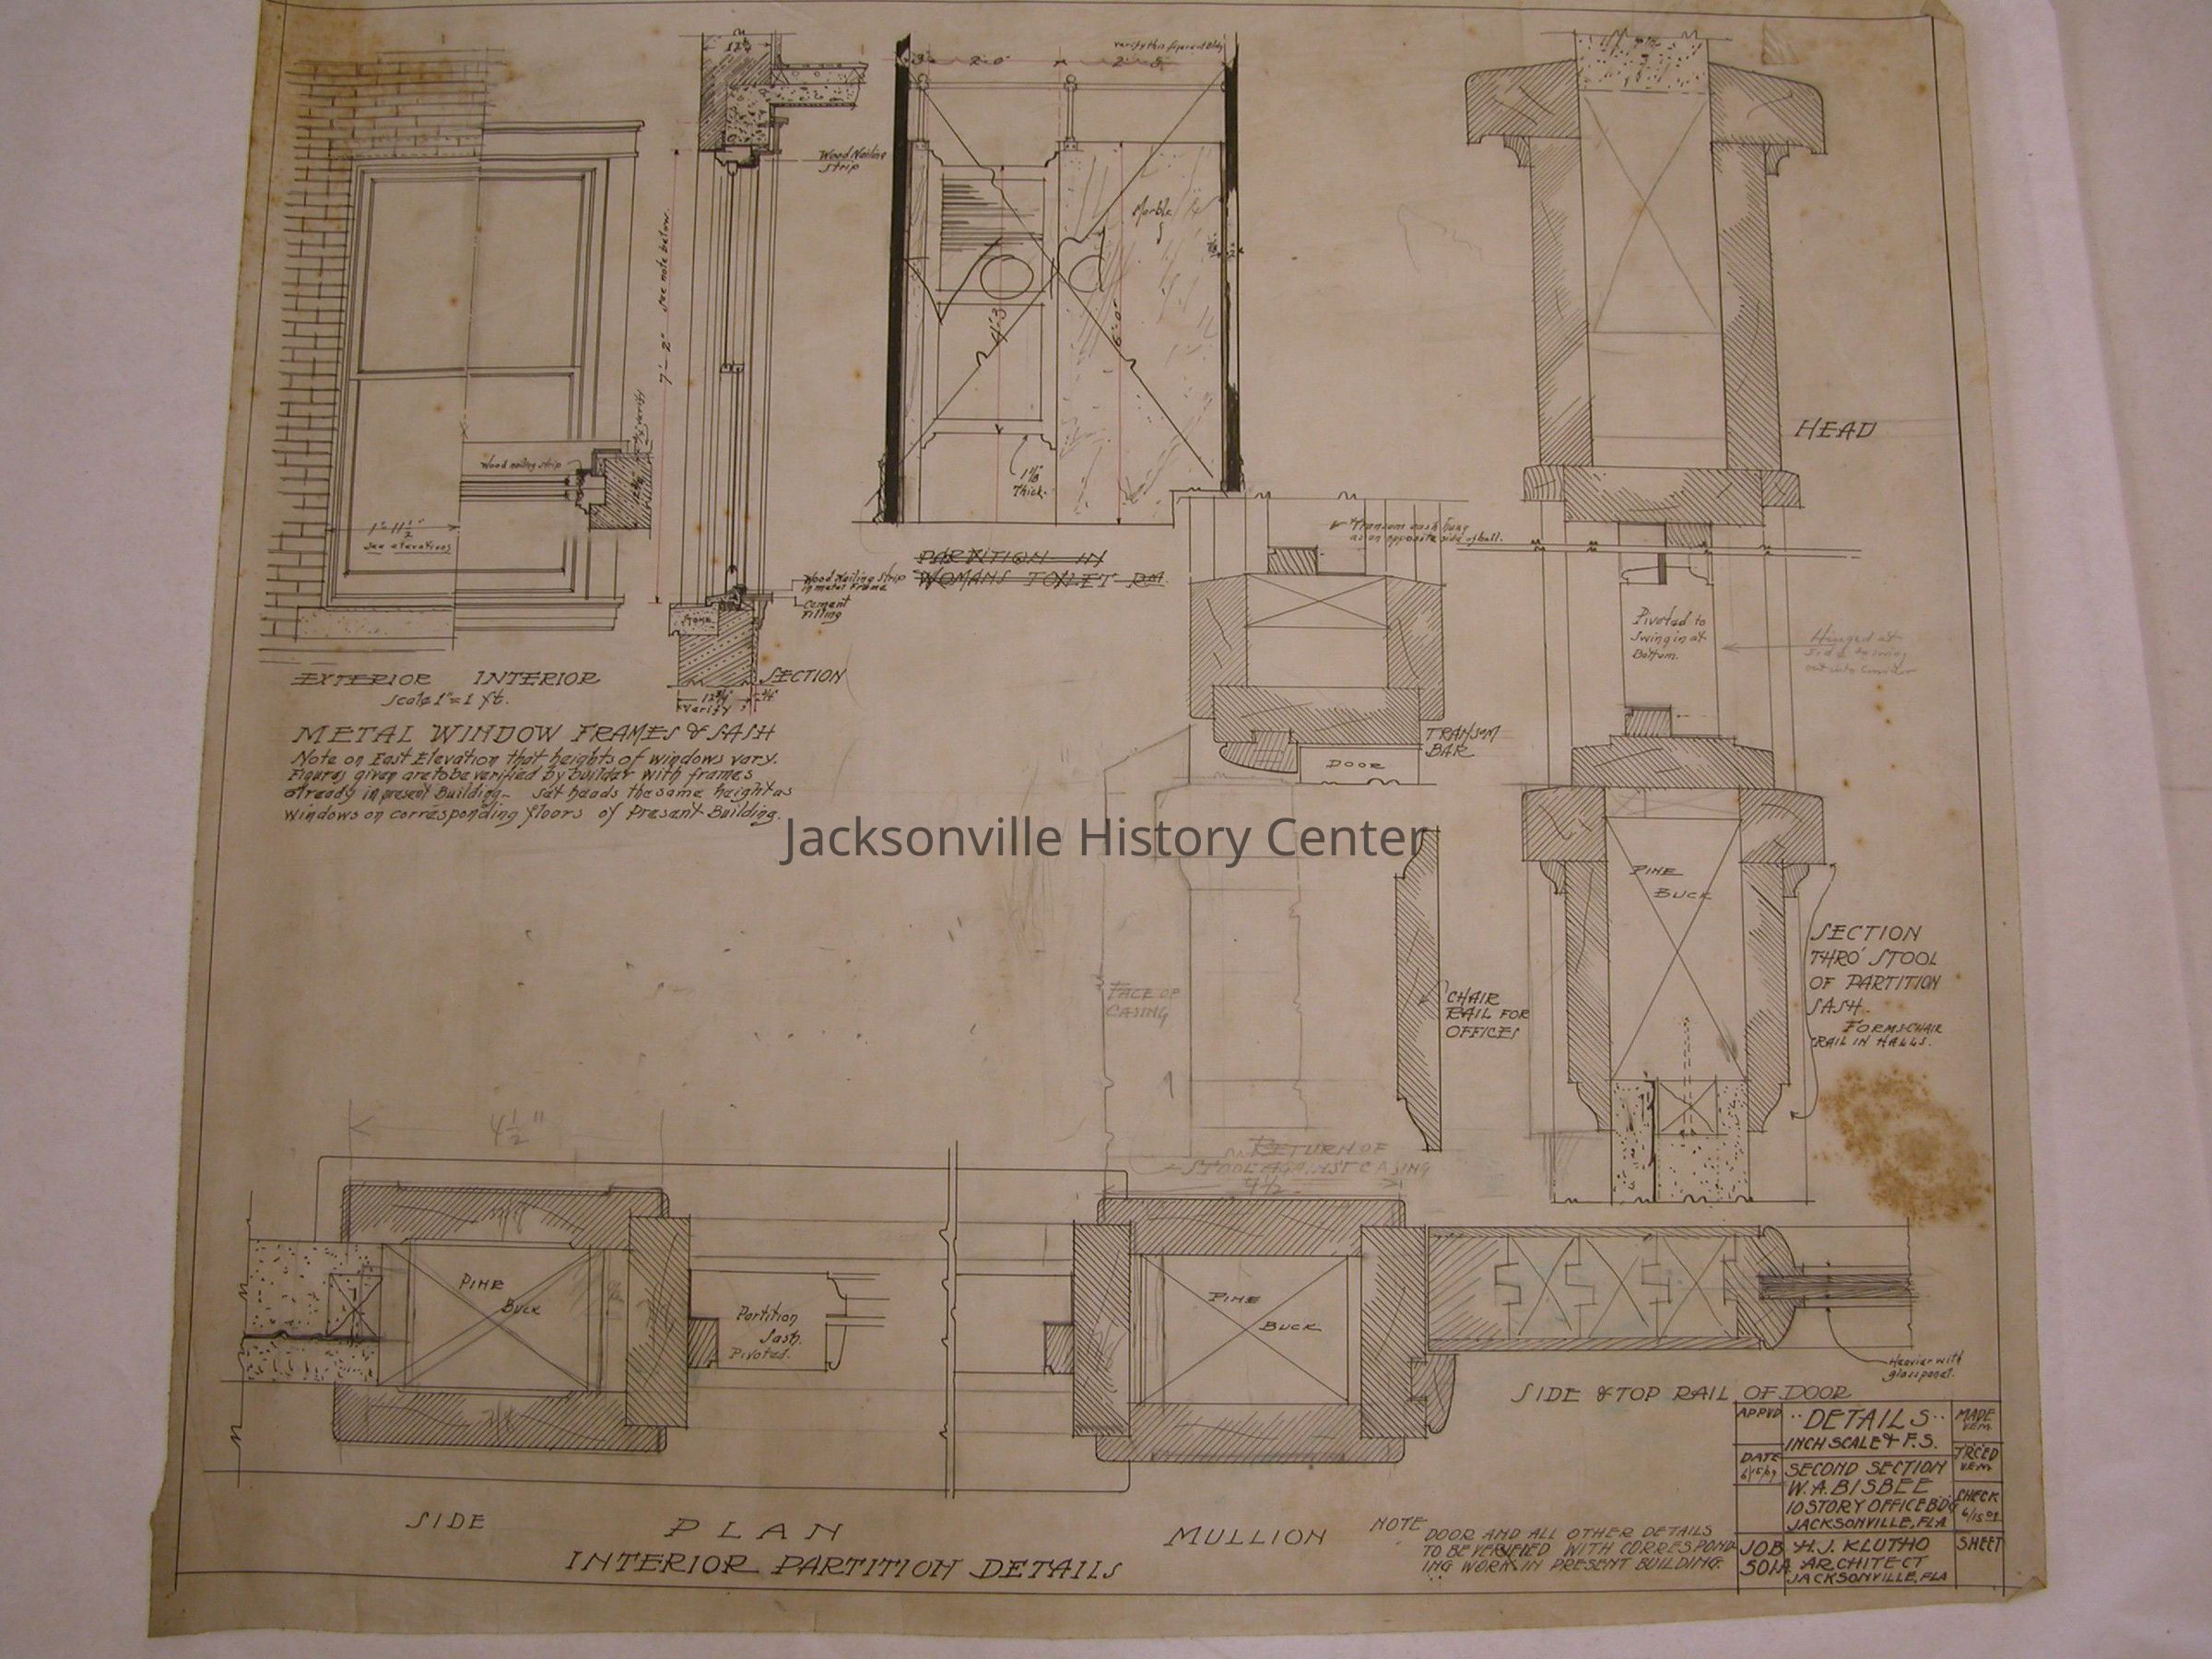 12¾"
Wood Nailing
Strip
7'-2" see note below.
Wood nailing strip
1'-11½"
see elevations
Verify
Wood Nailing Strip
in metal Frame
Cement
Filling
Stone
EXTERIOR INTERIOR
Scale 1"=1 ft.
SECTION
12¾"
Verify
METAL WINDOW FRAMES & SASH
Note on East Elevation that heights of windows vary.
Figures given are to be verified by builder with frames
already in present Building- Set heads the same height as
windows on corresponding floors of Present Building.
verify this figure at Bldg
3" 2'-0" 2'-5"
Marble
4'-3"
6'-0"
1⅛"
Thick.
PARTITION IN
WOMANS TOILET RM.
Transom sash hung
as on opposite side of hall.
TRANSOM
BAR
DOOR
HEAD
Pivoted to
Swing in at
Bottom.
Hinged at
side to swing
out into Corridor
PINE
BUCK
SECTION
THRO' STOOL
OF PARTITION
SASH.
FORMS CHAIR
RAIL IN HALLS.
CHAIR
RAIL FOR
OFFICES
FACE OF
CASING
RETURN OF
STOOL AGAINST CASING
4½
4½"
PINE
BUCK
Partition
Sash.
Pivoted.
PINE
BUCK
Heavier with
glass panel.
SIDE & TOP RAIL OF DOOR
SIDE
PLAN
MULLION
INTERIOR PARTITION DETAILS
NOTE
DOOR AND ALL OTHER DETAILS
TO BE VERIFIED WITH CORRESPOND-
ING WORK IN PRESENT BUILDING.
APPVD
DETAILS
INCH SCALE & F.S.
MADE
V.E.M.
DATE
6/15/09
SECOND SECTION
W.A. BISBEE
10 STORY OFFICE BDG
JACKSONVILLE, FLA
TRCED
V.E.M.
CHECK
6/15 09
JOB
501A
H.J. KLUTHO
ARCHITECT
JACKSONVILLE, FLA
SHEET
Jacksonville History Center